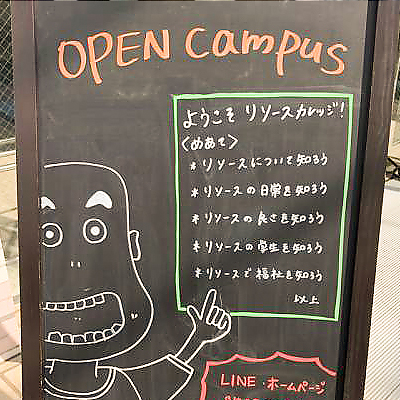 OPEN Campus
ようこそ リソースカレッジ!
<めあて>
*リソースについて知ろう
*リソースの日常を知ろう
*リソースの良さを知ろう
*リソースの学生を知ろう
*リソースで福祉を知ろう
以上
LINE・ホームページ